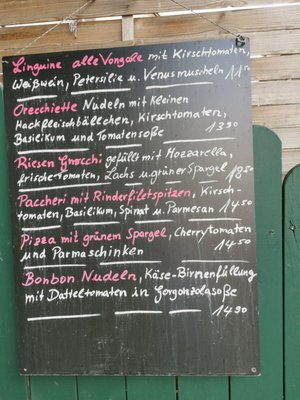 Linguine alle Vongole mit Kirschtomaten,
Weißwein, Petersilie u. Venusmuscheln 11
Orecchiette Nudeln mit kleinen
Hackfleischbällchen, Kirschtomaten,
Basilikum und Tomatensoße 13 90
Riesen Gnocchi gefüllt mit Mozzarella,
frische Tomaten, Lachs u. grüner Spargel 50
Paccheri mit Rinderfiletspitzen, Kirsch-
tomaten, Basilikum, Spinat u. Parmesan 14 50
Pizza mit grünem Spargel, Cherrytomaten
und Parmaschinken 14 50
Bonbon Nudeln, Käse-Birnenfüllung
mit Datteltomaten in Gorgonzolasoße
14 90